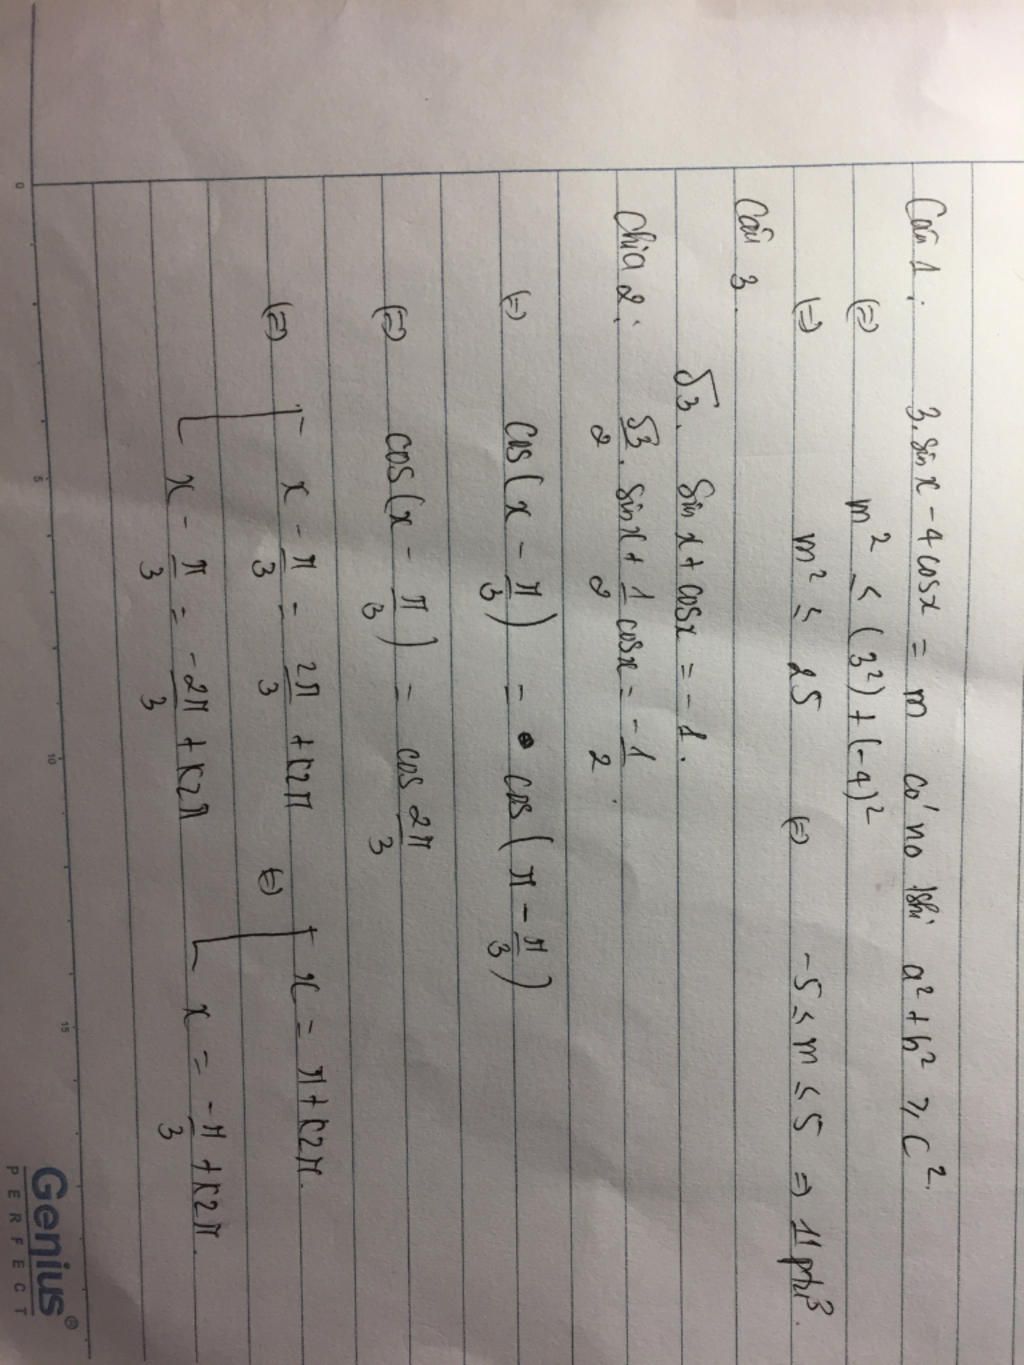 Câu 1: 3.sin x - 4cosx = m có no khi a² + b² ≥ c².
(=) m² ≤ (3²) + (-4)²
(=) m² ≤ 25 (=) -5 ≤ m ≤ 5 => 11
Câu 3.
√3. sin x + cosx = -1.
Chia 2: √3/2 . sinx + 1/2 cosx = -1/2.
(=) cos(x - π/3) = cos(π - π/3)
(=) cos(x - π/3) = cos 2π/3
(=) [ x - π/3 = 2π/3 + k2π (=) [ x = π + k2π.
x - π/3 = -2π/3 + k2π x = -π/3 + k2π.
Genius®
PERFECT
0 5 10 15